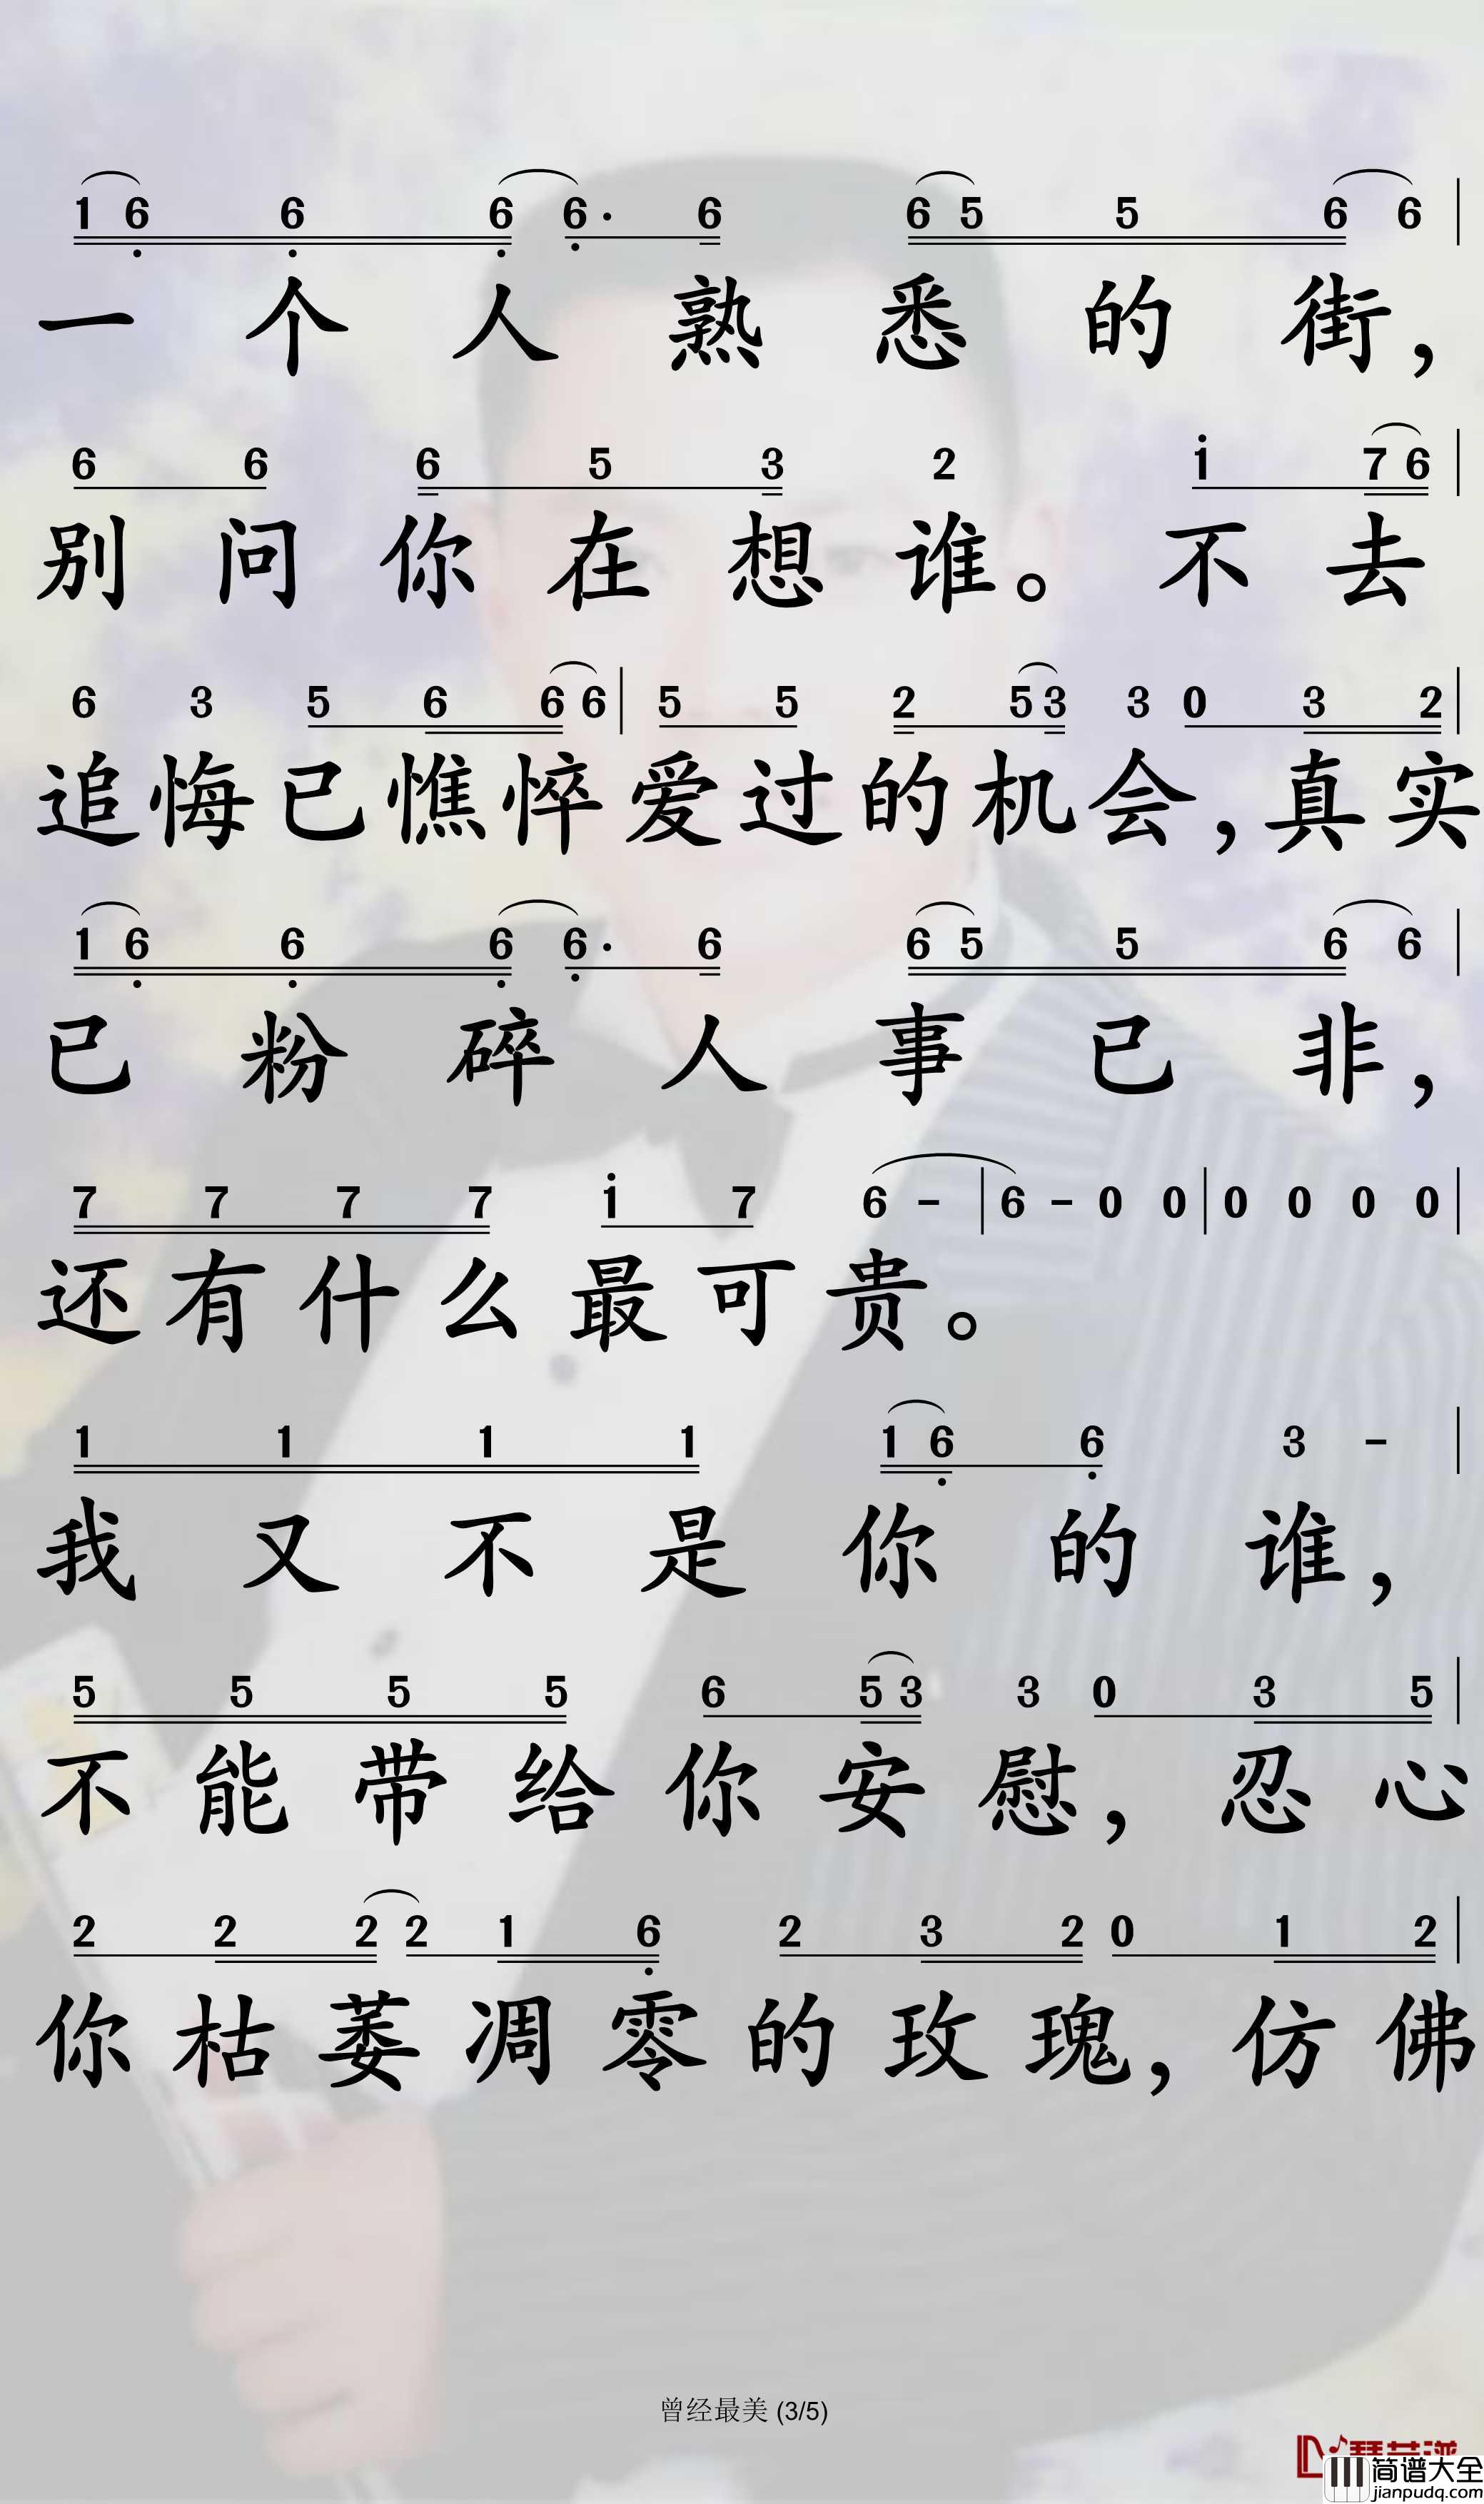 1 6 6 6 6· 6 6 5 5 6 6
一个人熟悉的街，
6 6 6 5 3 2 1 7 6
别问你在想谁。不去
6 3 5 6 6 6 | 5 5 2 5 3 3 0 3 2
追悔已憔悴爱过的机会，真实
1 6 6 6 6· 6 6 5 5 6 6
已粉碎人事已非，
7 7 7 7 1 7 6 - | 6 - 0 0 | 0 0 0 0
还有什么最可贵。
1 1 1 1 1 6 6 3 -
我又不是你的谁，
5 5 5 5 6 5 3 3 0 3 5
不能带给你安慰，忍心
2 2 2 2 1 6 2 3 2 0 1 2
你枯萎凋零的玫瑰，仿佛
曾经最美 (3/5)
简谱大全
jianpudq.com